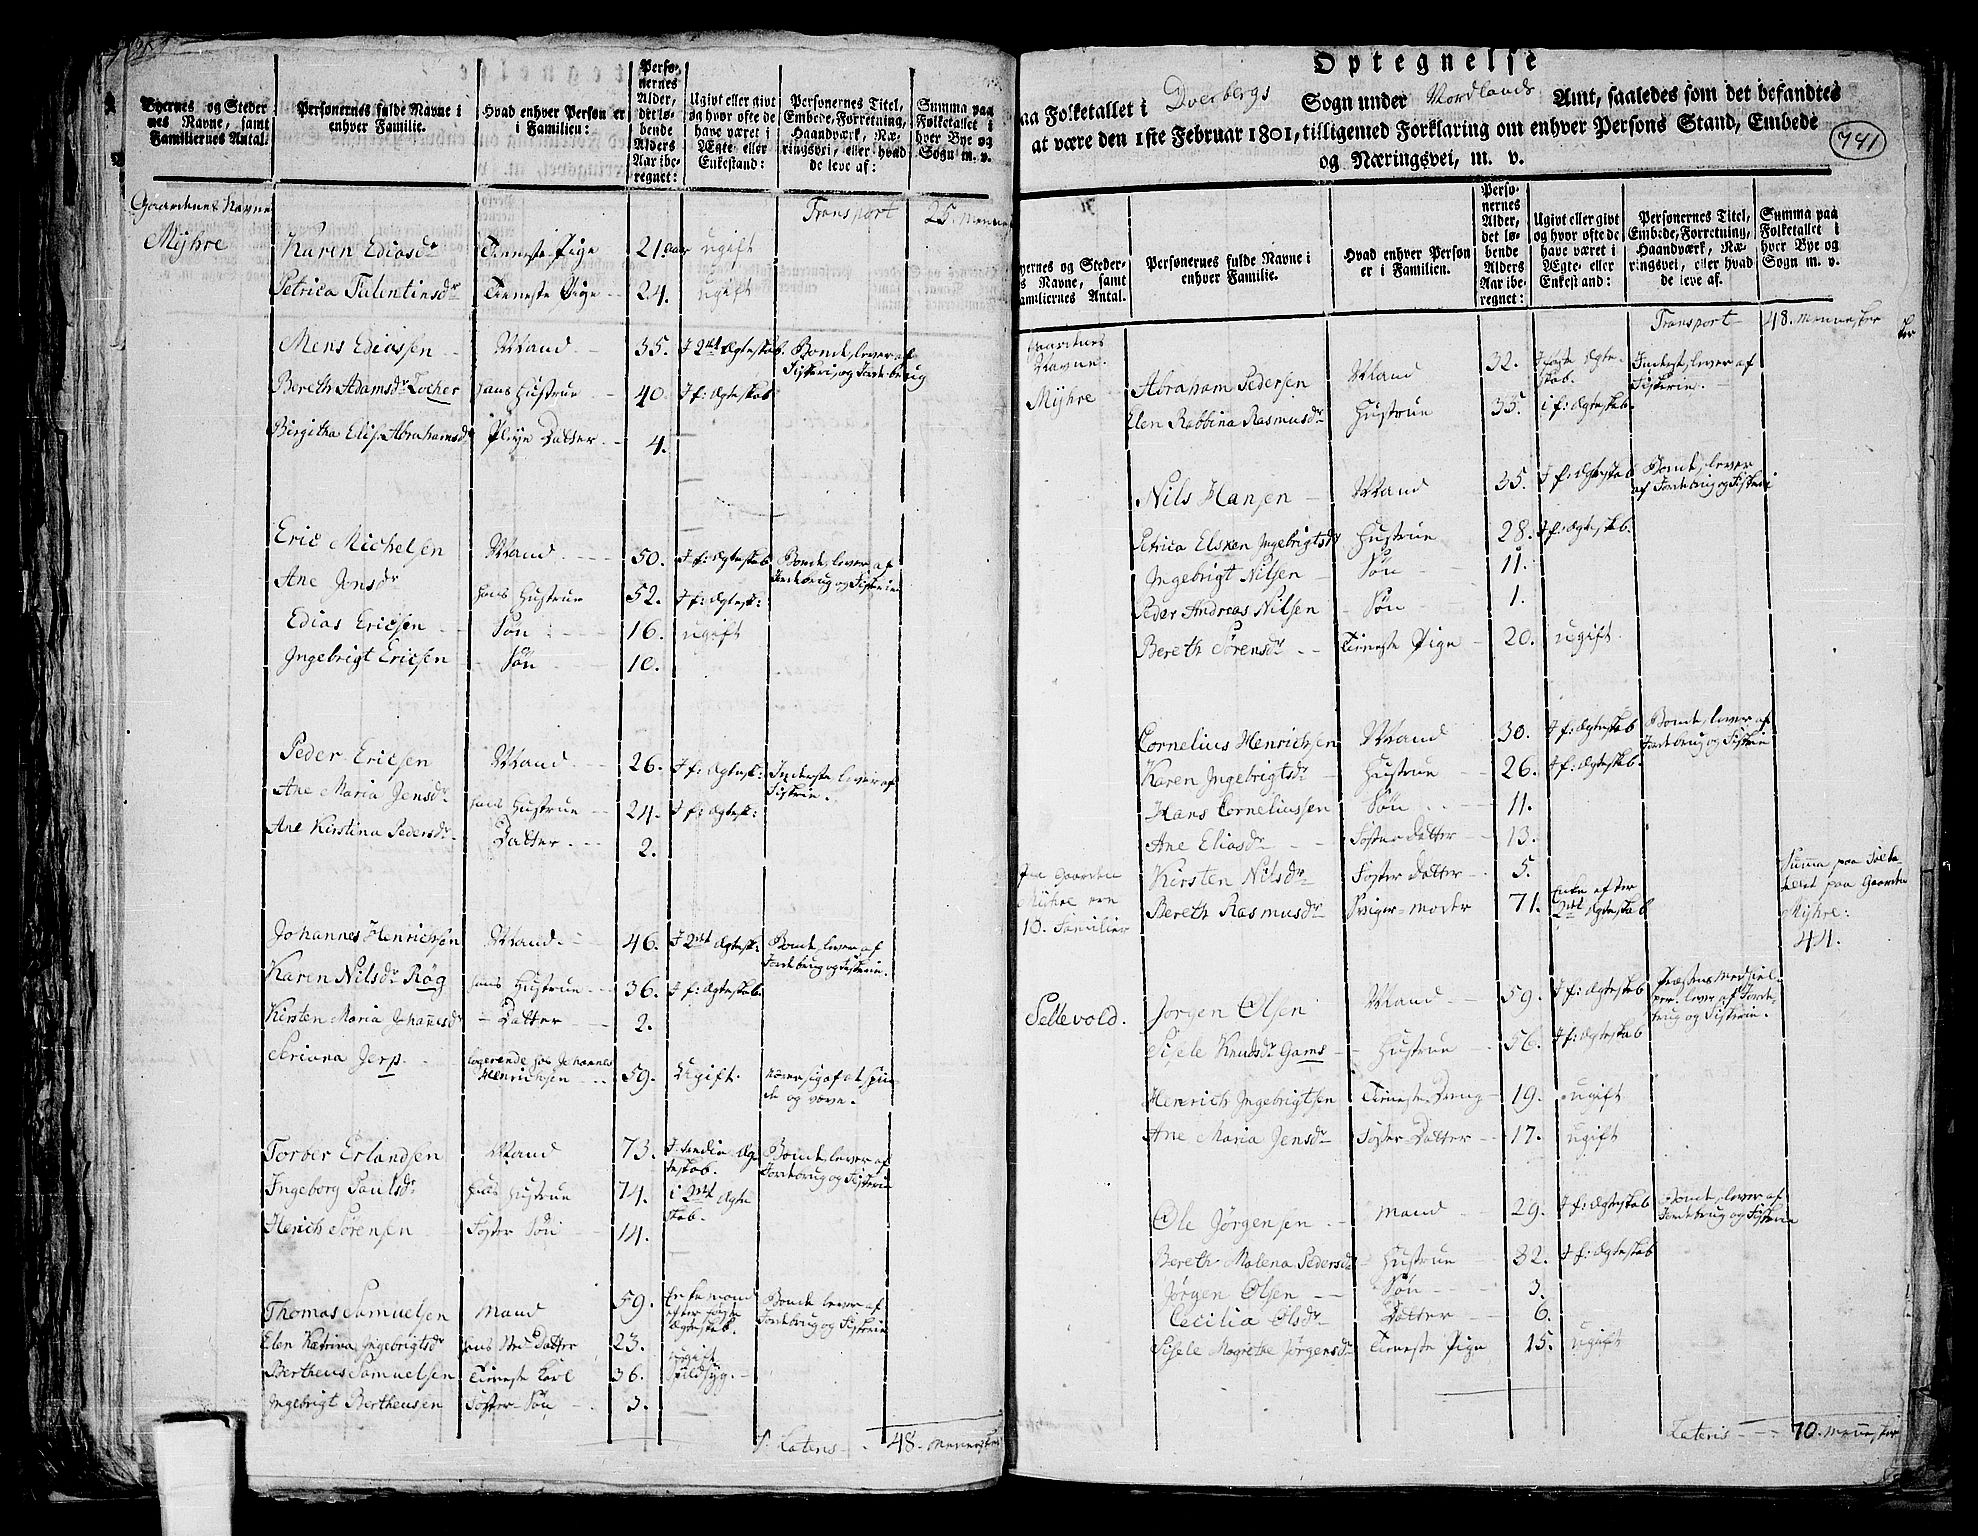 Byernes og Steder-
nes Navne, samt
Familiernes Antal.
Personernes fulde Navne i
enhver Familie.
Hvad enhver Person er
i Familien:
Perso-
nernes
Alder,
det lø-
bende
Alders
Aar ibe-
regnet:
Ugivt eller givt
og hvor ofte de
have været i
Ægte eller
Enkestand:
Personernes Titel,
Embede, Forretning,
Haandværk, Næ-
ringsvei, eller hvad
de leve af:
Summa paa
Folketallet i
hver Bye og
Sogn m. v.
Gaardenes Navne
Transport 25. Mennes
Myhre Karen Ediasdr Tieneste Pige 21 aar ugift
Petrica Falentinsdr Tieneste Pige 24. ugift
Mens Ediassen Mand 35. I 2det Ægteskab. Bonde, lever af
Fiskeri, og Jordebrug
Bereth Adamsdr Locher hans Hustrue 40. I f: Ægteskab
Birgitha Elis. Abrahamsd Pleye Datter 4.
Eric Michelsen Mand 50. I f: Ægteskab Bonde, lever af
Jordebrug og Fiskerie
Ane Jonsdr hans Hustrue 52. I f: Ægtesk:
Edias Ericsen Søn 16. ugift
Ingebrigt Ericsen Søn 10.
Peder Ericsen Mand 26. I f: Ægtesk: Inderste lever af
Fiskerie.
Ane Maria Jensdr hans Hustrue 24. I f: Ægtesk:
Ane Kirstina Pedersdr Datter 2.
Johannes Henrichsen Mand 46. I 2det Ægtesk: Bonde, lever af
Jordebrug og Fiskerie.
Karen Nilsdr Røg hans Hustrue 36. I f: Ægteskab.
Kirsten Maria Johannesd Datter 2.
Seriana Jerp logerende hos Johannes
Henrichsen 59. Ugift. nærer sig af at spin-
de og væve.
Torber Erlandsen Mand 73. I tredie Æg-
teskab. Bonde, lever af
Jordebrug og Fiskerie
Ingeborg Paulsdr hans Hustrue 74. i 2det Ægte
skab.
Henich Sørensen Foster Søn 14.
Thomas Samuelsen Mand 59. Enkemand
efter første
Ægteskab. Bonde lever af
Jordebrug og Fiskerie
Elen Katrina Ingebrigtsd hans Datter 23.
Bertheus Samuelsen Tieneste Karl 36. ugift
Ingebrigt Bertheusen Foster Søn 3.
Lateris 48. Mennesker
Optegnelse
paa Folketallet i Dverbergs Sogn under Nordlands Amt, saaledes som det befandtes
at være den 1ste Februar 1801, tilligemed Forklaring om enhver Persons Stand, Embede
og Næringsvei, m. v.
741
Byernes og Steder-
nes Navne, samt
Familiernes Antal.
Personernes fulde Navne i
enhver Familie.
Hvad enhver Person
er i Familien.
Perso-
nernes
Alder,
det lø-
bende
Alders
Aar ibe-
regnet:
Ugivt eller givt
og hvor ofte de
have været i
Ægte eller
Enkestand:
Personernes Titel,
Embede, Forretning,
Haandværk, Næ-
ringsvei, eller hvad
de leve af.
Summa paa
Folketallet i
hver Bye og
Sogn m. v.
Transport 48. Mennesker
Gaardenes
Navne.
Myhre Abraham Pedersen Mand 32. I første Ægte-
skab. Inderst, lever af
Fiskerie.
Elen Rabbina Rasmusdr Hustrue 35. i f: Ægteskab.
Nils Hansen Mand 35. I f: Ægteskab Bonde, lever
af Jordebrug og Fiskeri
Petrica Elsken Ingebrigtsdr Hustrue 28. I f: Ægteskb.
Ingebrigt Nilsen Søn 11.
Peder Andreas Nilsen Søn 1.
Bereth Sørensdr Tieneste Pige 20. ugift.
Cornelius Henrichsen Mand 30. I f: Ægteskab Bonde, lever af
Jordebrug og Fiskerie
Karen Ingebrigtsdr Hustrue 26. I f: Ægteskab.
Hans Corneliussen Søn 11.
Ane Eliasdr Foster Datter 13.
Kirsten Nilsdr Foster Datter 5.
Bereth Rasmusdr Sviger-moder 71. Enke efter
2det Ægteskab
Paa Gaarden
Myhre ere
10. Familier
Summa paa Folke-
tallet paa Gaarden
Myhre:
44.
Sellevold. Jørgen Olsen Mand 59. I f: Ægteskab Præstens Medhiel-
per. lever af Jorde-
brug og Fiskerie.
Sisele Knudsdr Gams Hustrue 56. I f: Ægteskab
Henrich Ingebrigtsen Tieneste Dreng 19. ugift
Ane Maria Jensdr Foster Datter 17. ugift
Ole Jørgensen Mand 29. I f: Ægteskab Bonde, lever af
Jordebrug og Fiskerie
Bereth Malena Pedersdr Hustrue 32. I f: Ægteskab
Jørgen Olsen Søn 3.
Cecilia Olsdr Datter 6.
Sisele Magrethe Jørgensdr Tieneste Pige 15. ugift
Lateris 70. Mennesker